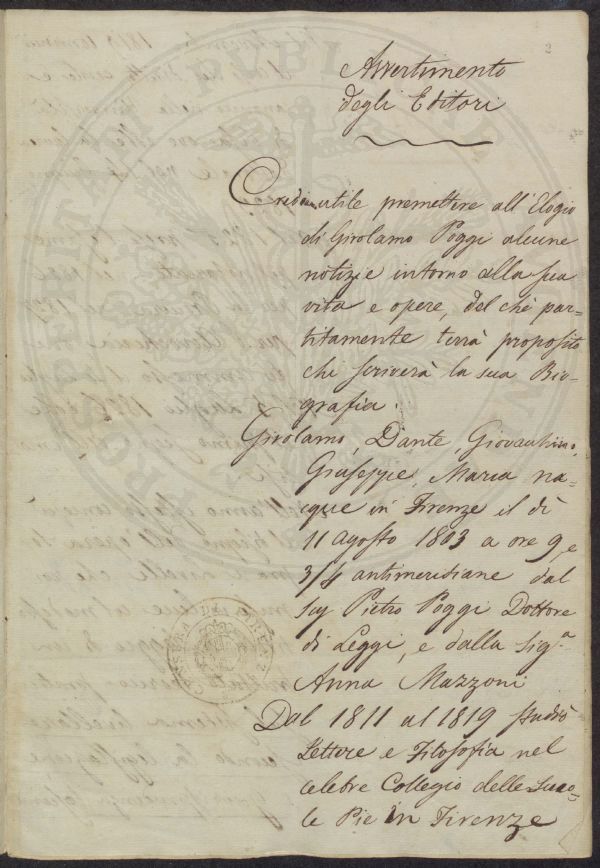 2
Avvertimento
degli Editori
Crediam utile premettere all'Elogio
di Girolamo Poggi alcune
notizie intorno alla sua
vita e opere, del chè par-
titamente terrà proposito
chi scriverà la sua Bio-
grafia.
Girolamo, Dante, Giovacchino,
Giuseppe, Maria na-
cque in Firenze il dì
11 agosto 1803 a ore 9, e
3/4 antimeridiane dal
Sig Pietro Poggi Dottore
di Leggi, e dalla Sig.ª
Anna Mazzoni
Dal 1811 al 1819 studiò
Lettere e Filosofia nel
celebre Collegio delle Scuo-
le Pie in Firenze